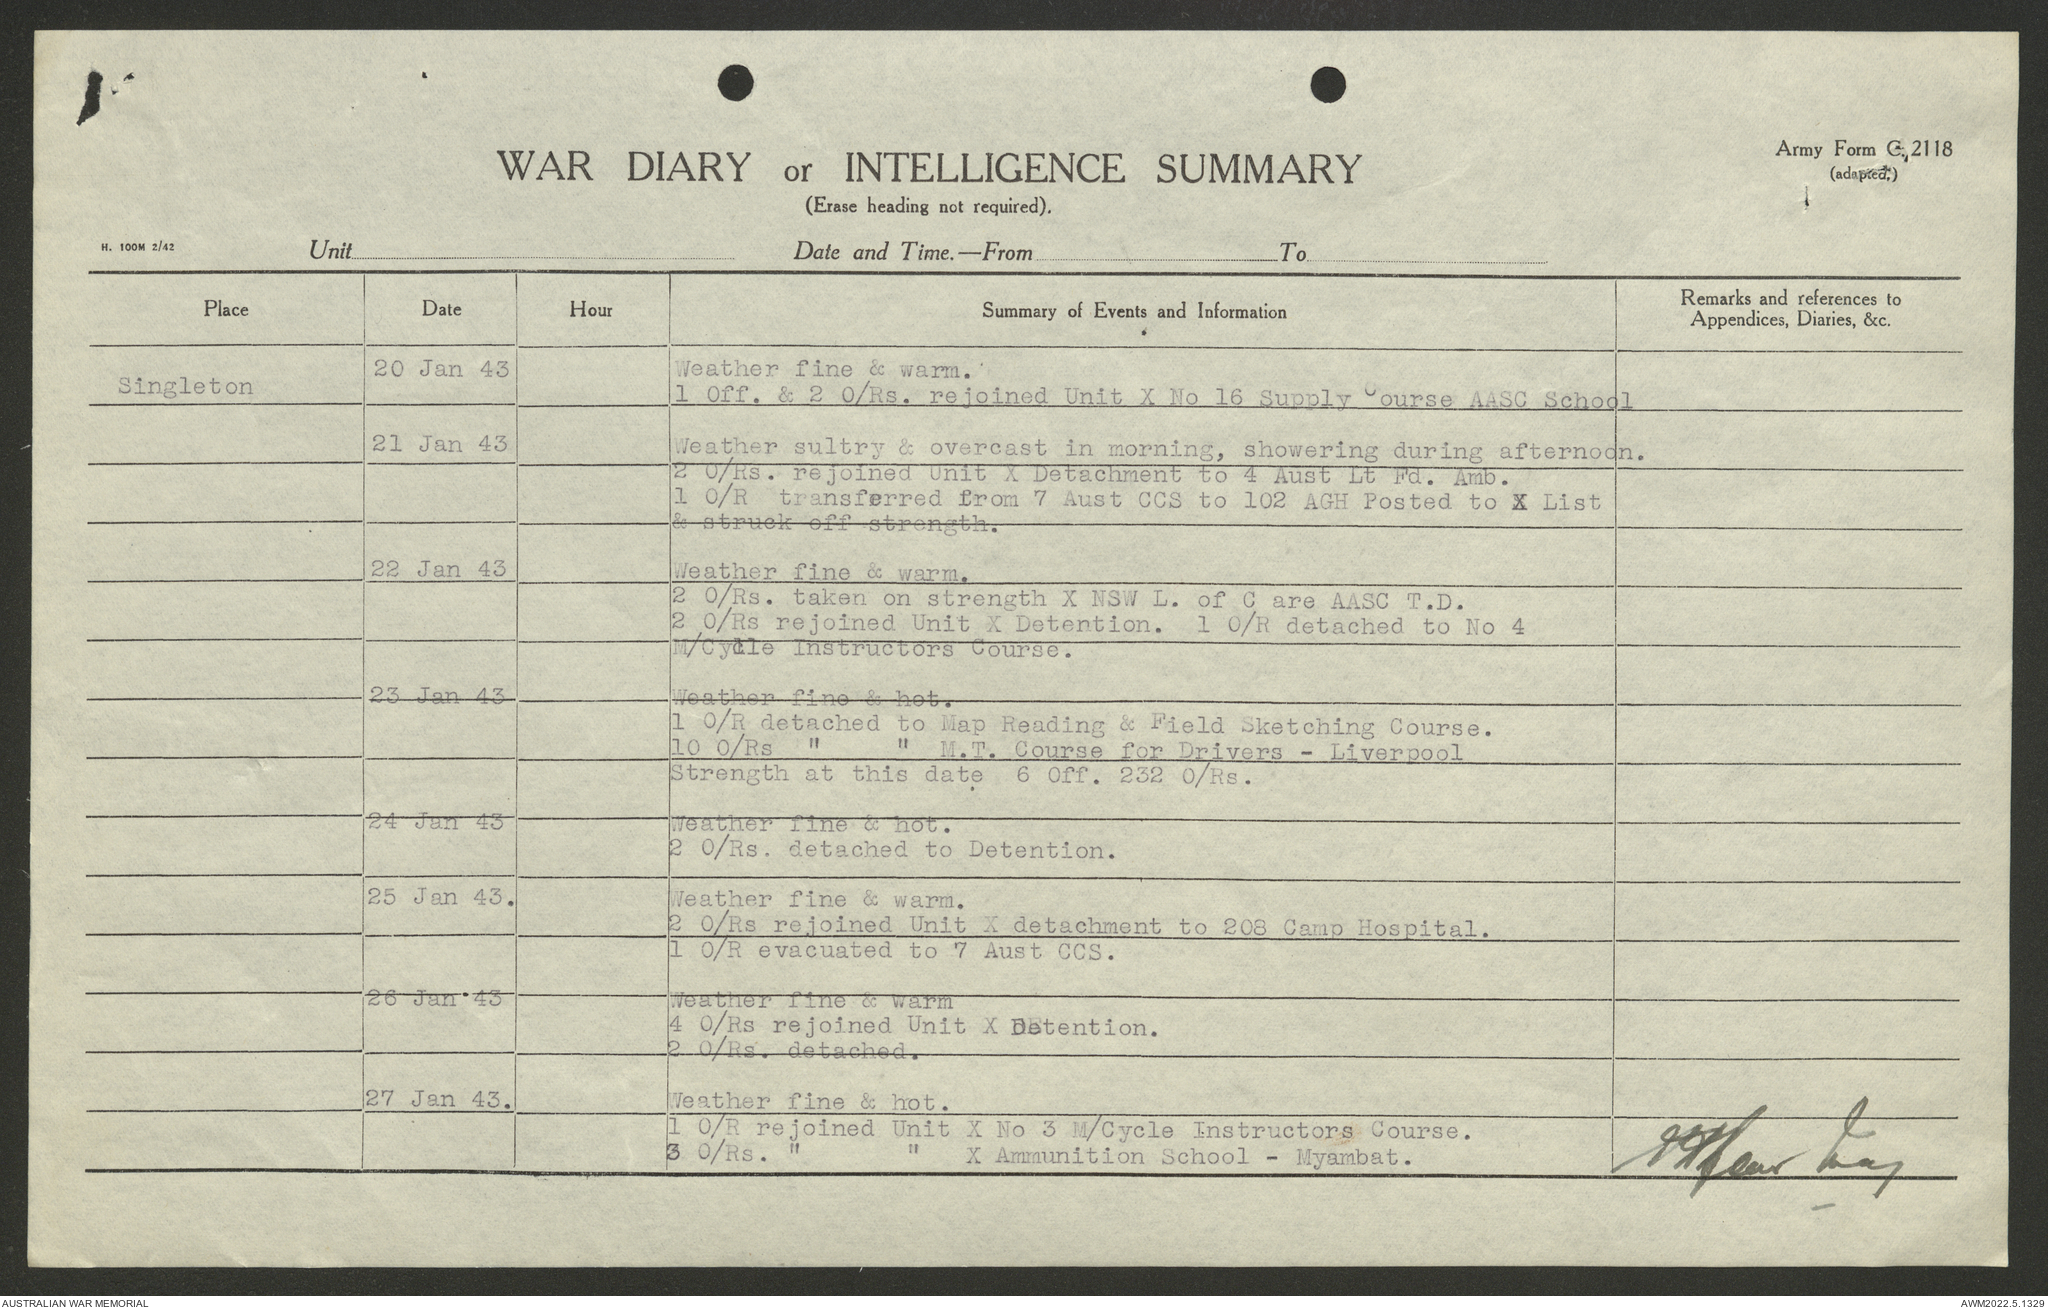 WAR DIARY or INTELLIGENCE SUMMARY
(Erase heading not required).
Army Form C. 2118
(adapted.)
H. 100M 2/42
Unit Date and Time.—From To
Place Date Hour Summary of Events and Information Remarks and references to Appendices, Diaries, &c.
Singleton 20 Jan 43 Weather fine & warm.
1 Off. & 2 O/Rs. rejoined Unit X No 16 Supply Course AASC School
21 Jan 43 Weather sultry & overcast in morning, showering during afternoon.
2 O/Rs. rejoined Unit X Detachment to 4 Aust Lt Fd. Amb.
1 O/R transferred from 7 Aust CCS to 102 AGH Posted to X List
& struck off strength.
22 Jan 43 Weather fine & warm.
2 O/Rs. taken on strength X NSW L. of C are AASC T.D.
2 O/Rs rejoined Unit X Detention. 1 O/R detached to No 4
M/Cycle Instructors Course.
23 Jan 43 Weather fine & hot.
1 O/R detached to Map Reading & Field Sketching Course.
10 O/Rs " " M.T. Course for Drivers - Liverpool
Strength at this date 6 Off. 232 O/Rs.
24 Jan 43 Weather fine & hot.
2 O/Rs. detached to Detention.
25 Jan 43. Weather fine & warm.
2 O/Rs rejoined Unit X detachment to 208 Camp Hospital.
1 O/R evacuated to 7 Aust CCS.
26 Jan 43 Weather fine & warm
4 O/Rs rejoined Unit X Detention.
2 O/Rs. detached.
27 Jan 43. Weather fine & hot.
1 O/R rejoined Unit X No 3 M/Cycle Instructors Course.
3 O/Rs. " " X Ammunition School - Myambat.
AUSTRALIAN WAR MEMORIAL
AWM2022.5.1329